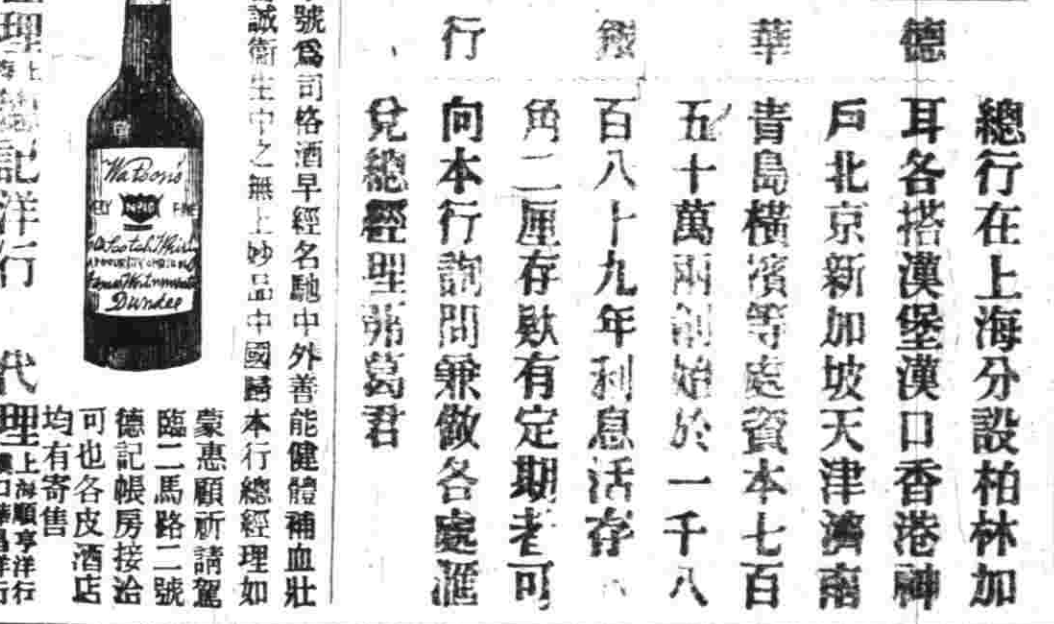 德華銀行
總行在上海分設柏林加
耳各搭漢堡漢口香港神
戶北京新加坡天津濟南
青島橫濱等處資本七百
五十萬兩創始於一千八
百八十九年利息活存八
角二厘存欵有定期者可
向本行詢問兼做各處滙
兌總經理弗葛君
號爲司格酒早經名馳中外善能健體補血壯
誠衛生中之無上妙品中國歸本行總經理如
蒙惠顧祈請駕
臨二馬路二號
德記帳房接洽
可也各皮酒店
均有寄售
Watson's
FINE
Scotch Whisky
Dundee
記洋行
代理
上海順亨洋行